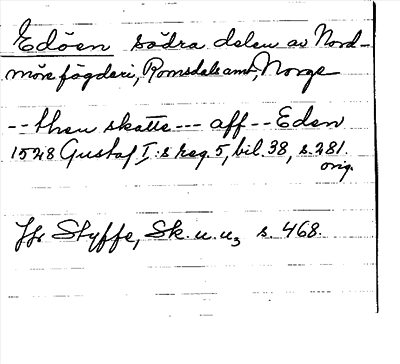 Edöen södra delen av Nord-
möre fögderi, Romsdals amt, Norge
-- then skatte --- aff -- Eden
1528 Gustaf I:s reg. 5, bil. 38, s. 281.
orig.
Jfr Styffe, Sk. u. u., s. 468.